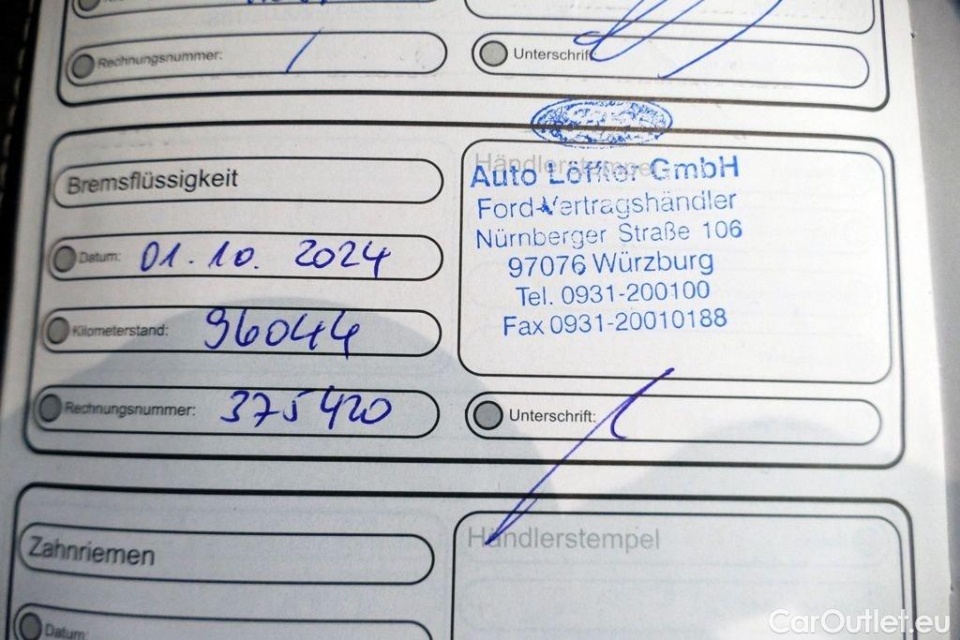 Rechnungsnummer: /
Unterschrift:
Bremsflüssigkeit
Datum: 01.10.2024
Kilometerstand: 96044
Rechnungsnummer: 375420
Händlerstempel
Auto Löffler GmbH
Ford-Vertragshändler
Nürnberger Straße 106
97076 Würzburg
Tel. 0931-200100
Fax 0931-20010188
Unterschrift:
Zahnriemen
Datum:
Händlerstempel
CarOutlet.eu